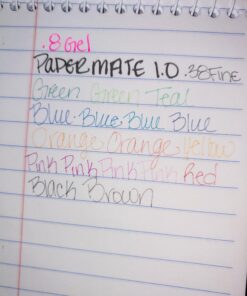 .8 Gel
PAPERMATE 1.0 .38 FINE
Green Green Teal
Blue Blue Blue Blue
Orange Orange Yellow
Pink Pink Pink Pink Red
Black Brown